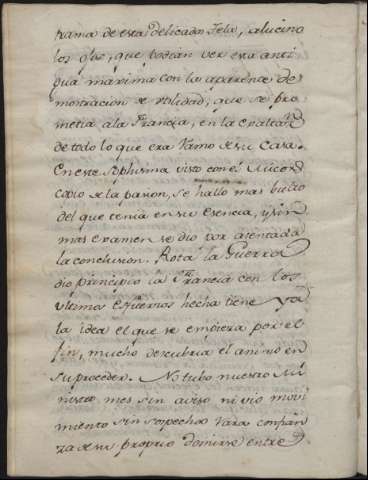 trama de esta delicada Tela, alucinò
los ojos, que podian ver esta anti
gua màxima con la aparente de
mostracion de utilidad; que se pro
metia ala Francia, en la exaltaⁿ
de todo lo que era Ramo de su Casa.
En este Sophisma visto con el Micros
copio de la pasion, se hallo mas bulto
del que tenia en su esencia, y sin
mas examen se dio por asentada
la conclusion. Rota la Guerra
dio principio la Francia con los
ultimos esfuerzos hecha tiene ya
la idea el que se empieza por el
fin, mucho descubria el animo en
su proceder. No tubo nuestro Mi
nistro, mes sin aviso ni vio movi
miento sin sospecha rara confian
za de su proprio dominio entre